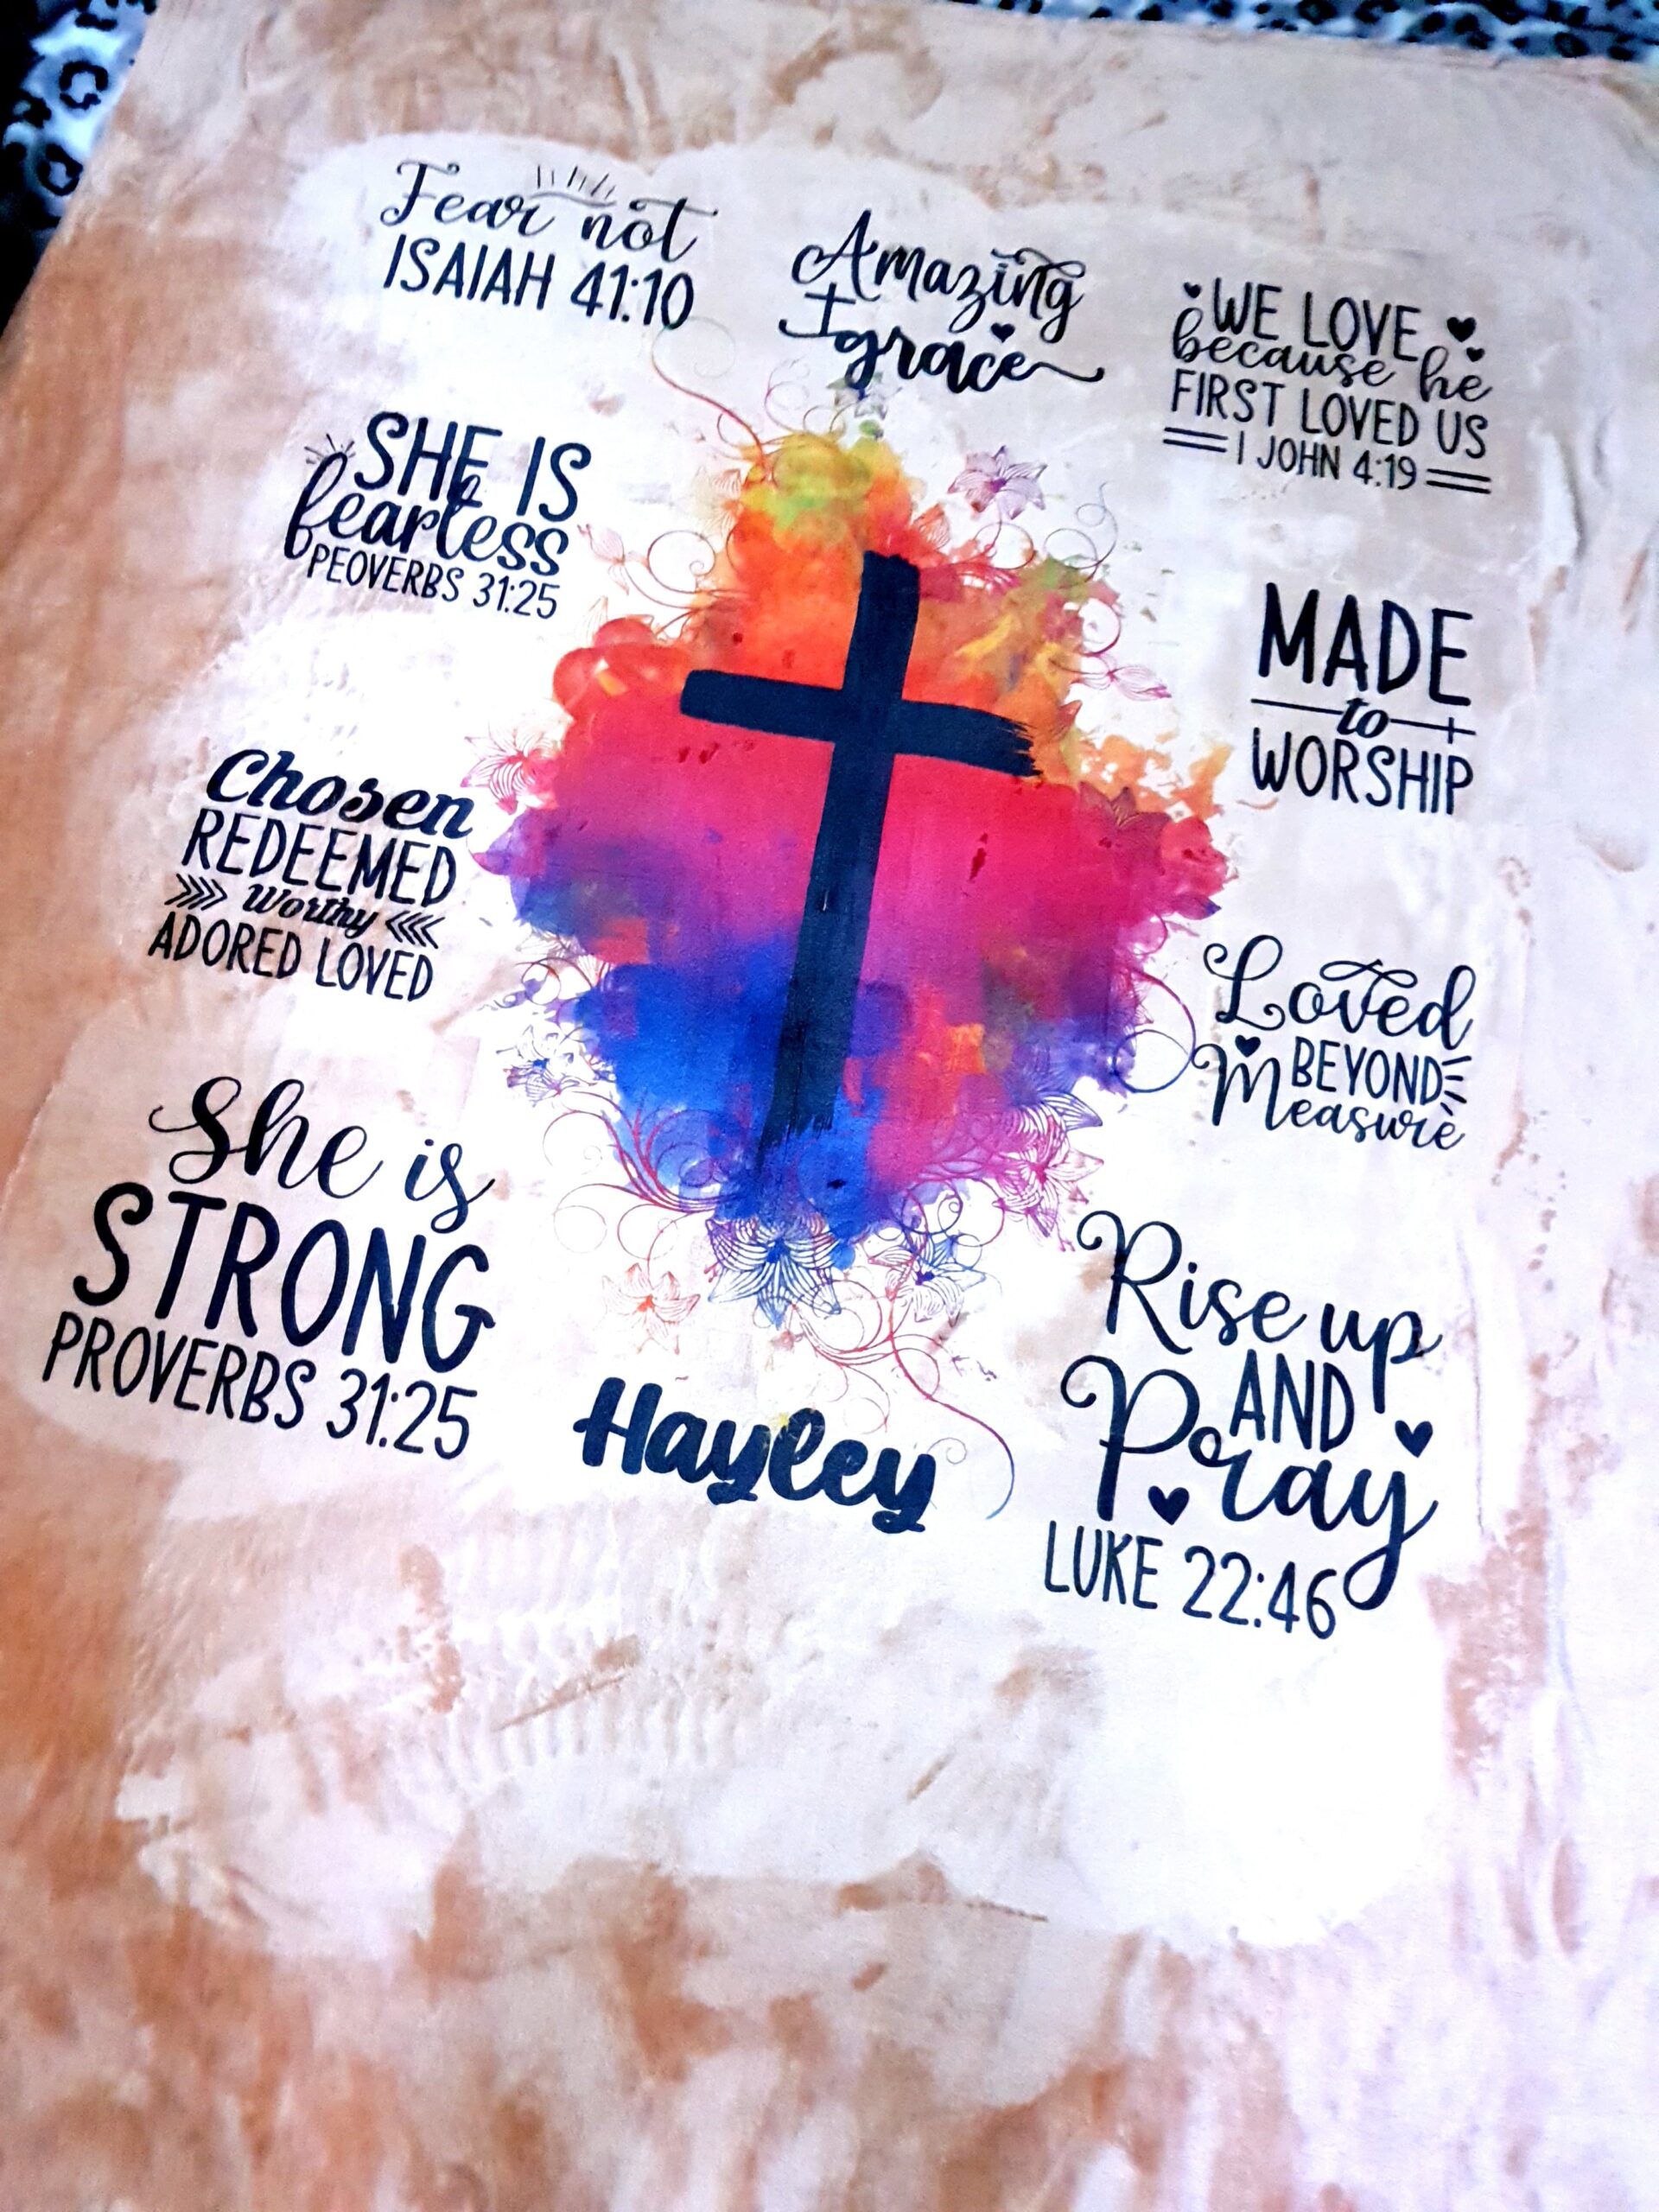 Fear not
ISAIAH 41:10
Amazing
grace
WE LOVE
because he
FIRST LOVED US
1 JOHN 4:19
SHE IS
fearless
PEOVERBS 31:25
MADE
to
WORSHIP
Chosen
REDEEMED
Worthy
ADORED LOVED
Loved
BEYOND
Measure
She is
STRONG
PROVERBS 31:25
Rise up
AND
Pray
LUKE 22:46
Hayley